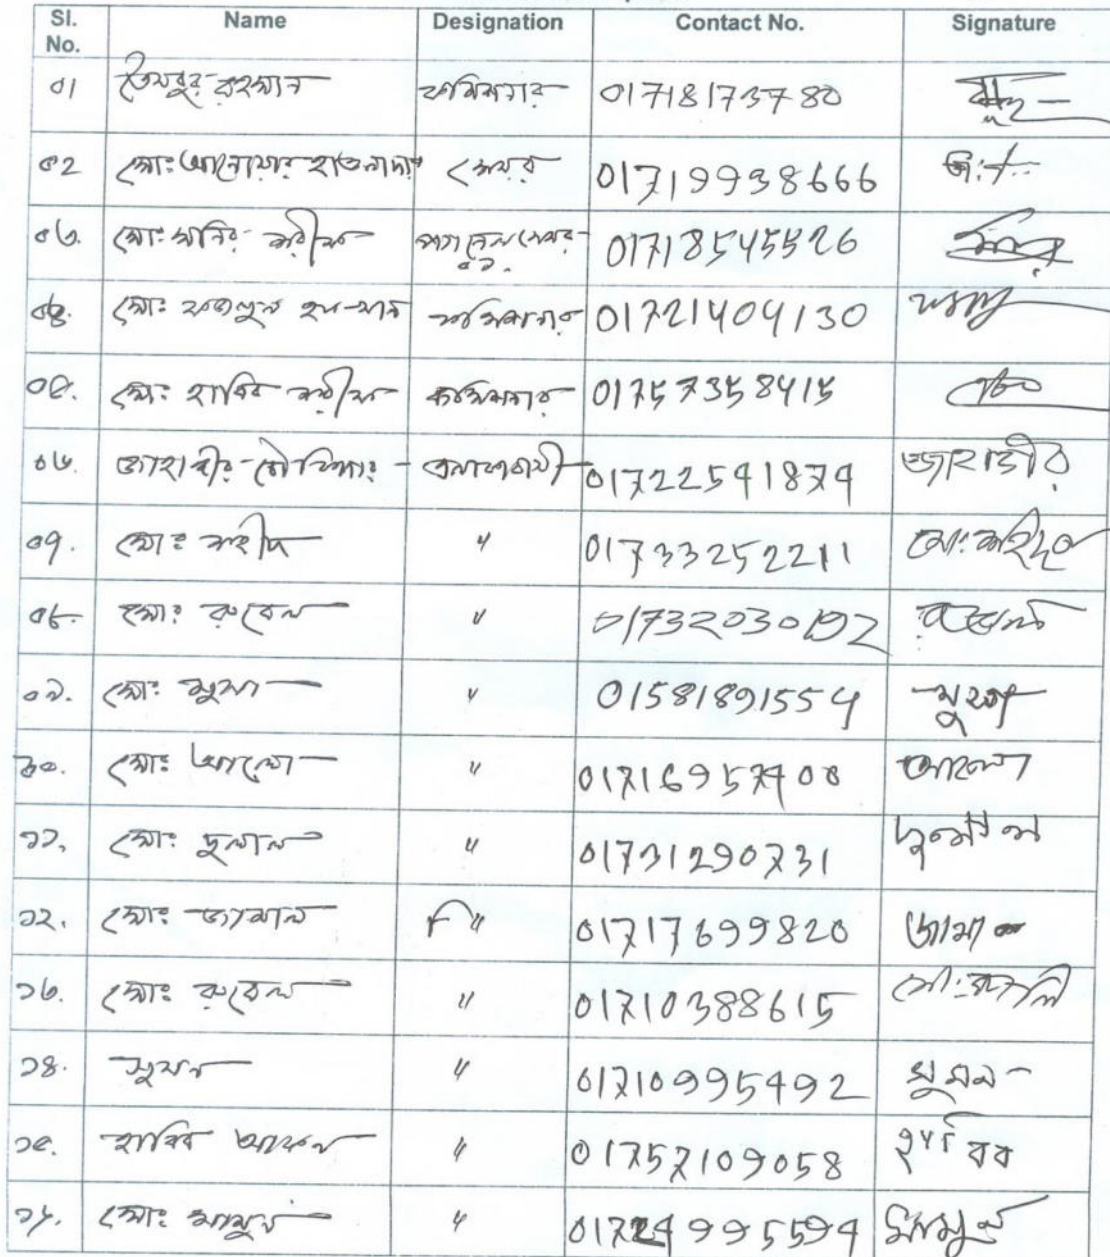 Sl. No. Name Designation Contact No. Signature
০১ তৈমুর রহমান কমিশনার 01718173780
০২ মোঃ আনোয়ার হাওলাদার মেয়র 01719938666
০৩. মোঃ মনির করীম প্যানেল মেয়র 01718545526
০৪. মোঃ ফজলুল হক খান কমিশনার 01721404130
০৫. মোঃ হাবিব করীম কমিশনার 01757358415
০৬. জাহাঙ্গীর এলাকাবাসী 01722541874 জাহাঙ্গীর
০৭. মোঃ " 01733252211 মোঃ
০৮. মোঃ রুবেল " 01732030192
০৯. মোঃ মুসা " 01581891554
১০. মোঃ আলো " 01716957400 আলো
১১. মোঃ দুলাল " 01731290731 দুলাল
১২. মোঃ জামাল " 01717699820 জামাল
১৩. মোঃ রুবেল " 01710388615 মোঃ
১৪. সুমন " 01710995492 সুমন
১৫. হাবিব " 01757109058 হাবিব
১৬. মোঃ মামুন " 01724995594 মামুন